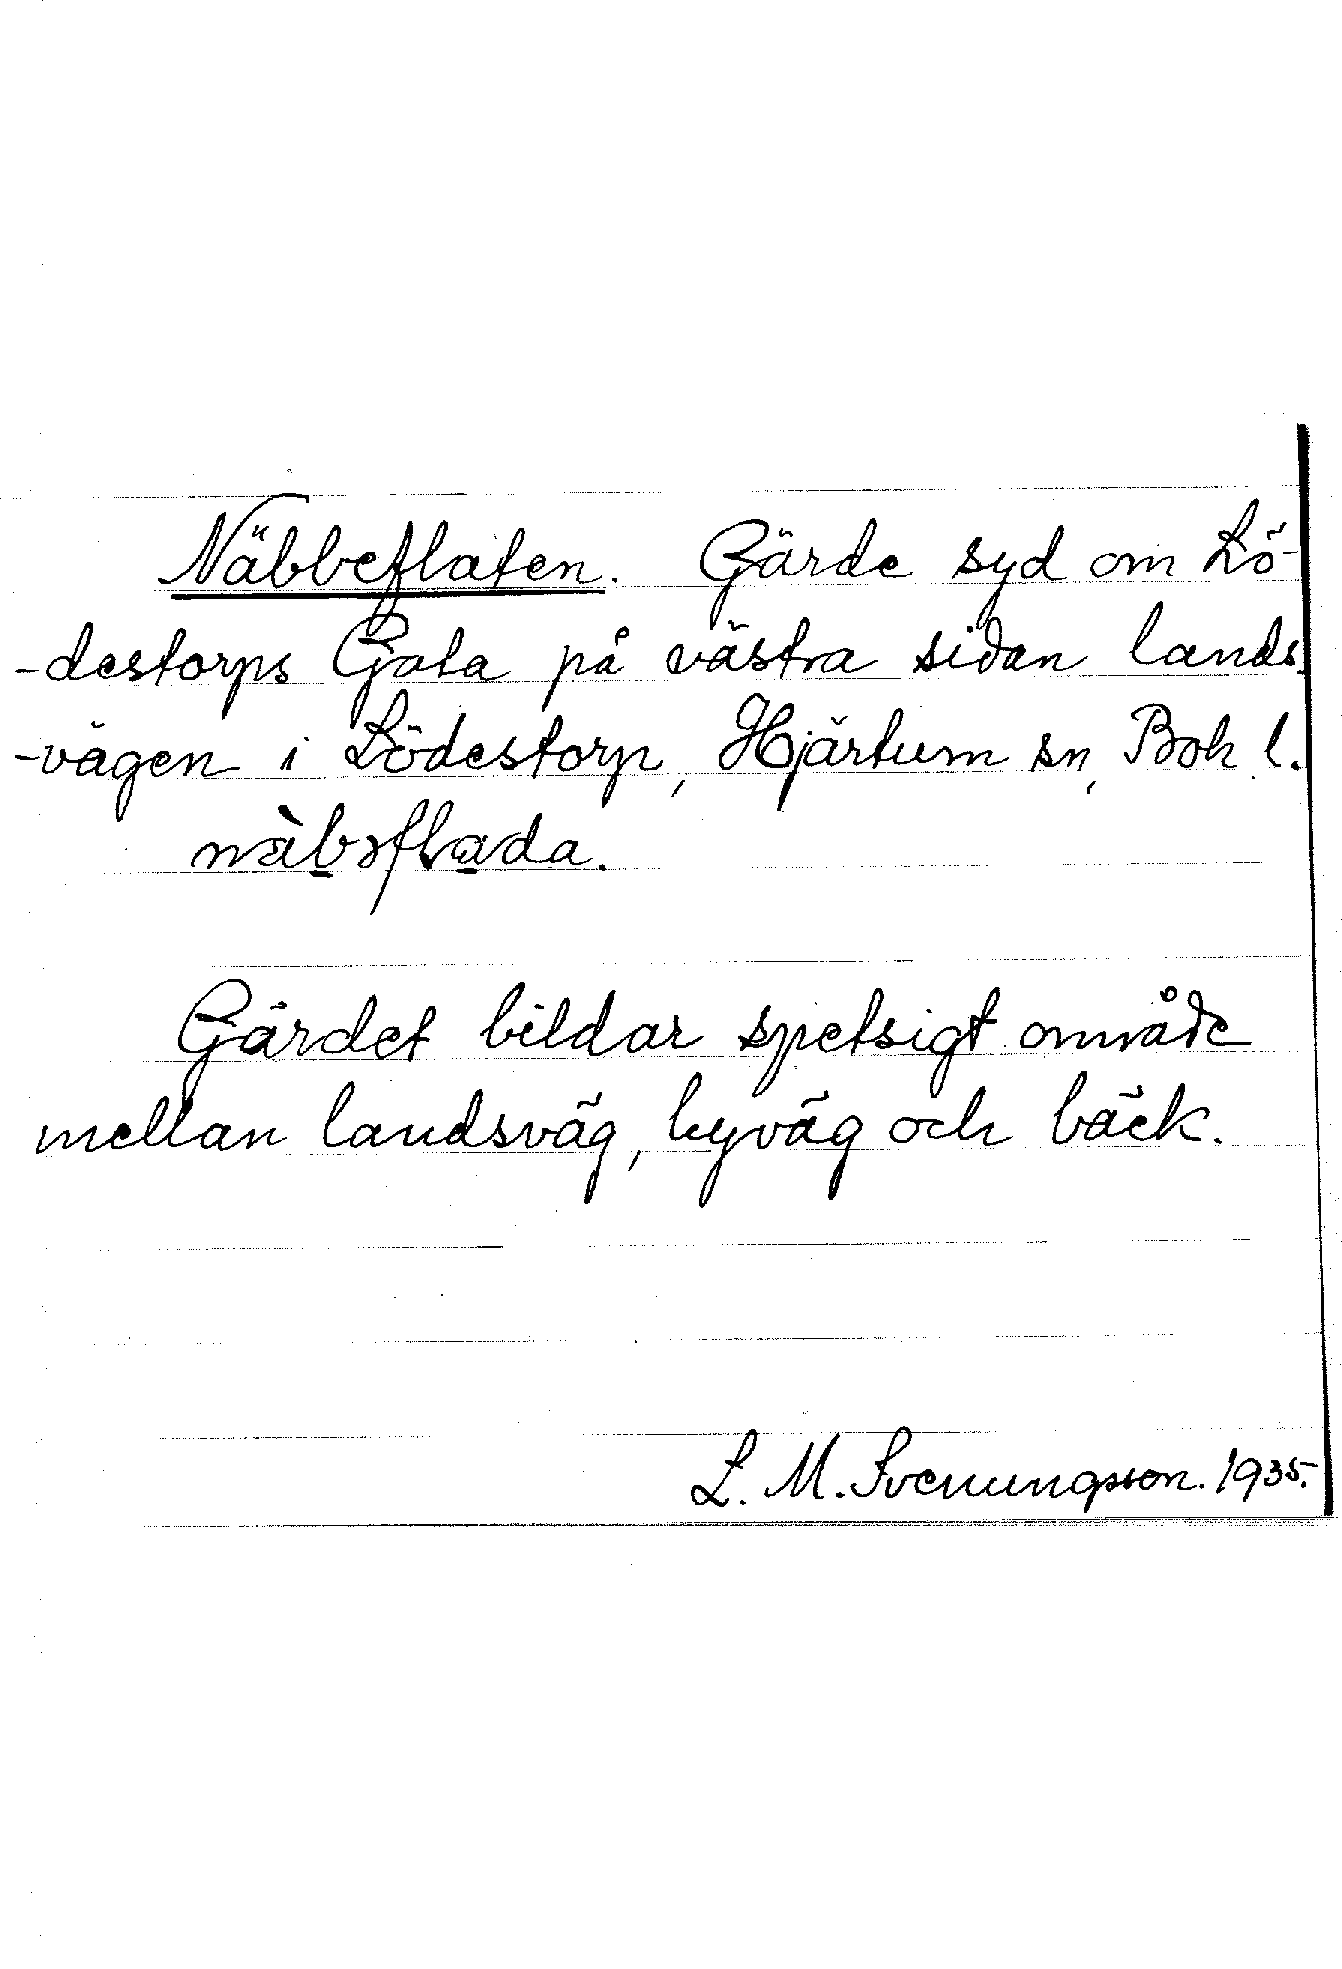 Näbbeflaten. Gärde syd om Lö-
-destorps Gata på västra sidan lands-
-vägen i Lödestorp, Hjärtum sn, Boh l.
nàbəflada.
Gärdet bildar spetsigt område
mellan landsväg, byväg och bäck.
L. M. Svenungsson. 1935.